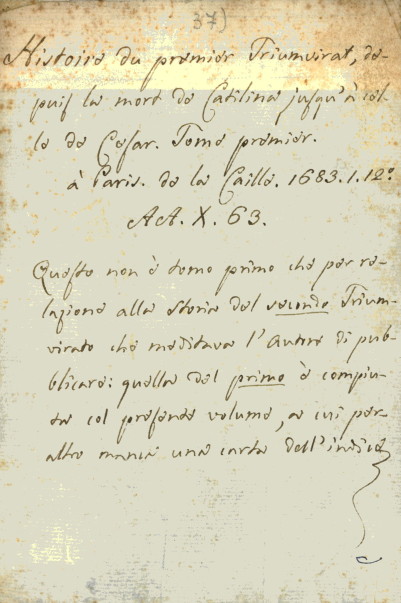 37)
Histoire du premier Triumvirat, de-
puis la mort de Catilina jusqu'à cel-
le de Cesar. Tome premier.
à Paris. de la Caille. 1683. 1. 12º
AA. X. 63.
Questo non è tomo primo che per re-
lazione alla storia del secondo Trium-
virato che meditava l'Autore di pub-
blicare: quella del primo è compiu-
ta col presente volume, a cui per-
altro manca una carta dell'indice